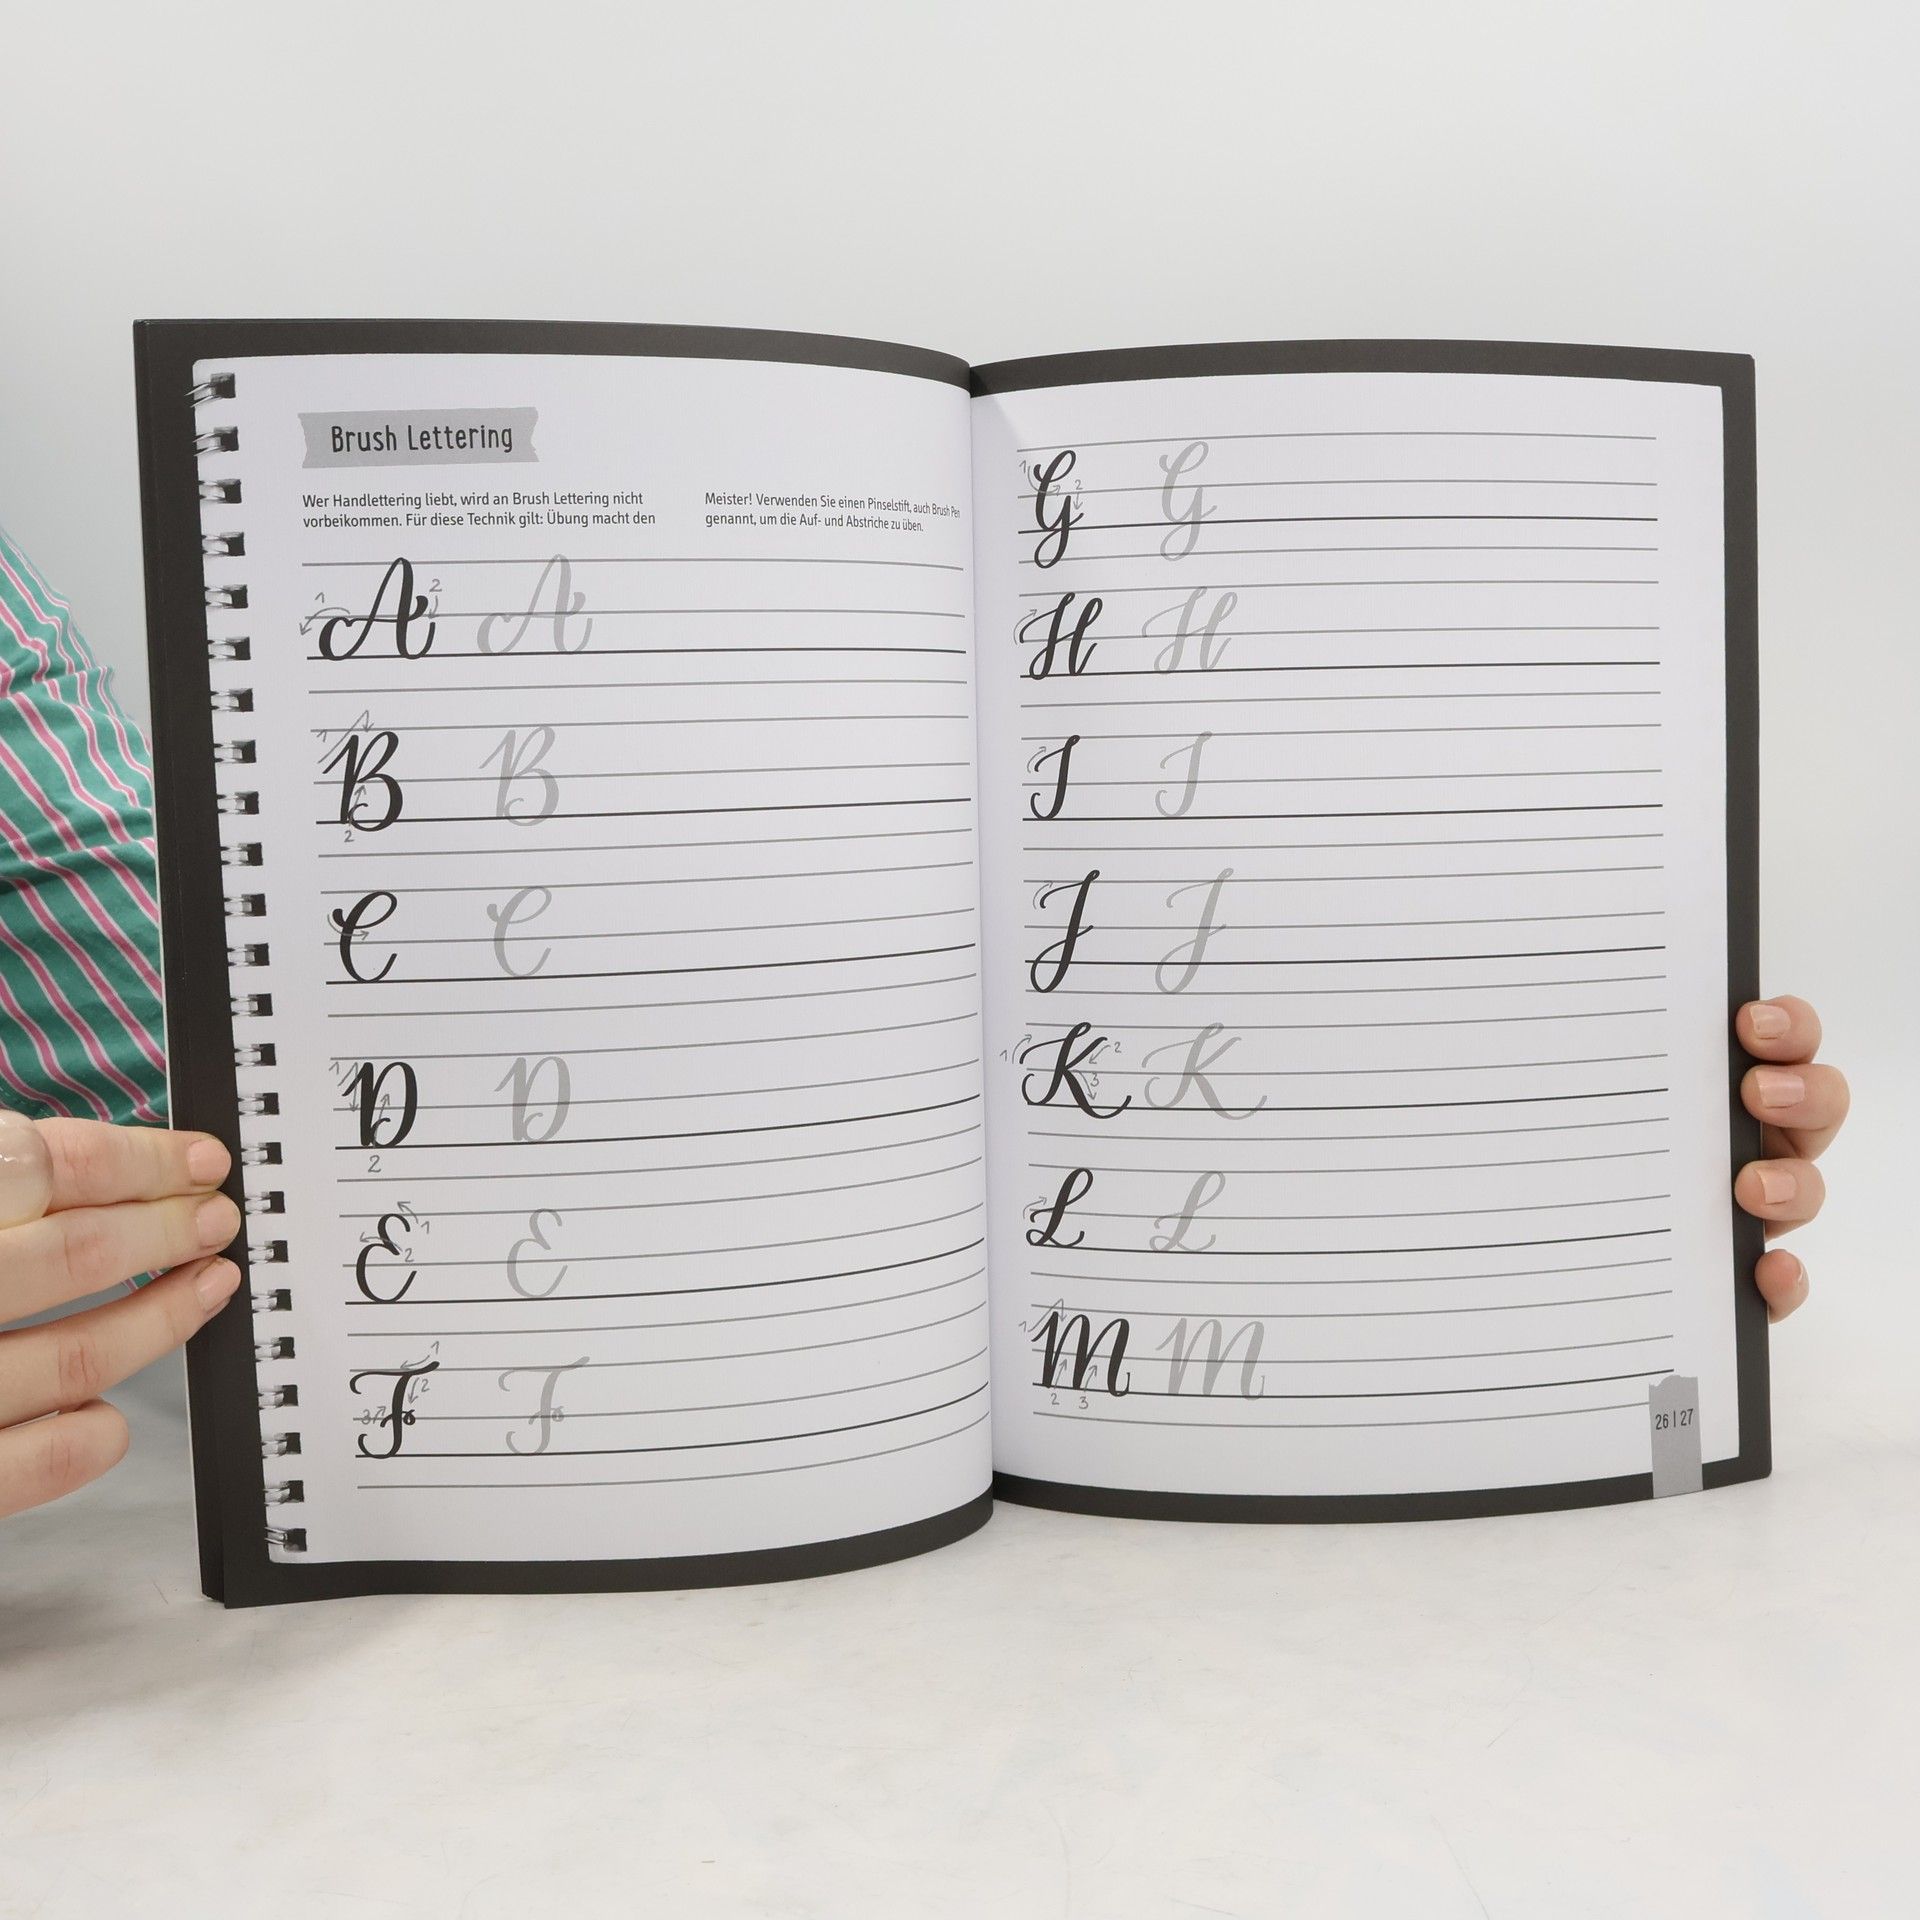 Brush Lettering
Wer Handlettering liebt, wird an Brush Lettering nicht
vorbeikommen. Für diese Technik gilt: Übung macht den
Meister! Verwenden Sie einen Pinselstift, auch Brush Pen
genannt, um die Auf- und Abstriche zu üben.
1 A 2 A
1 B 2 B
C C
1 D 2 D
E 1 2 E
F 1 2 3 F
1 G 2 G
H H
I I
J J
1 K 2 3 K
L L
1 M 2 3 M
26 | 27